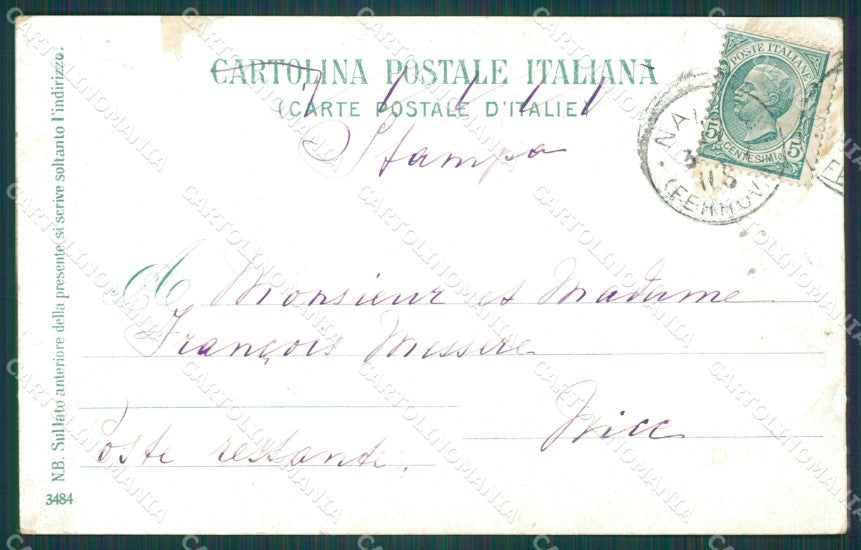 CARTOLINA POSTALE ITALIANA
(CARTE POSTALE D'ITALIE)
Stampa
POSTE ITALIANE
5 CENTESIMI 5
(FERROV
A Monsieur et Madame
François Messere
Nice
Poste restante.
N.B. Sul lato anteriore della presente si scrive soltanto l'indirizzo.
3484
CARTOLINOMANIA